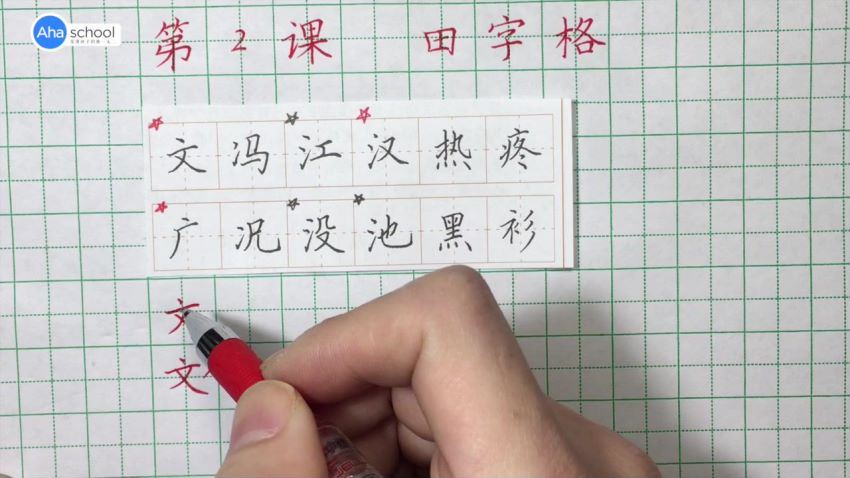 Aha school
第2课 田字格
文冯江汉热疼
广况没池黑衫
文
文